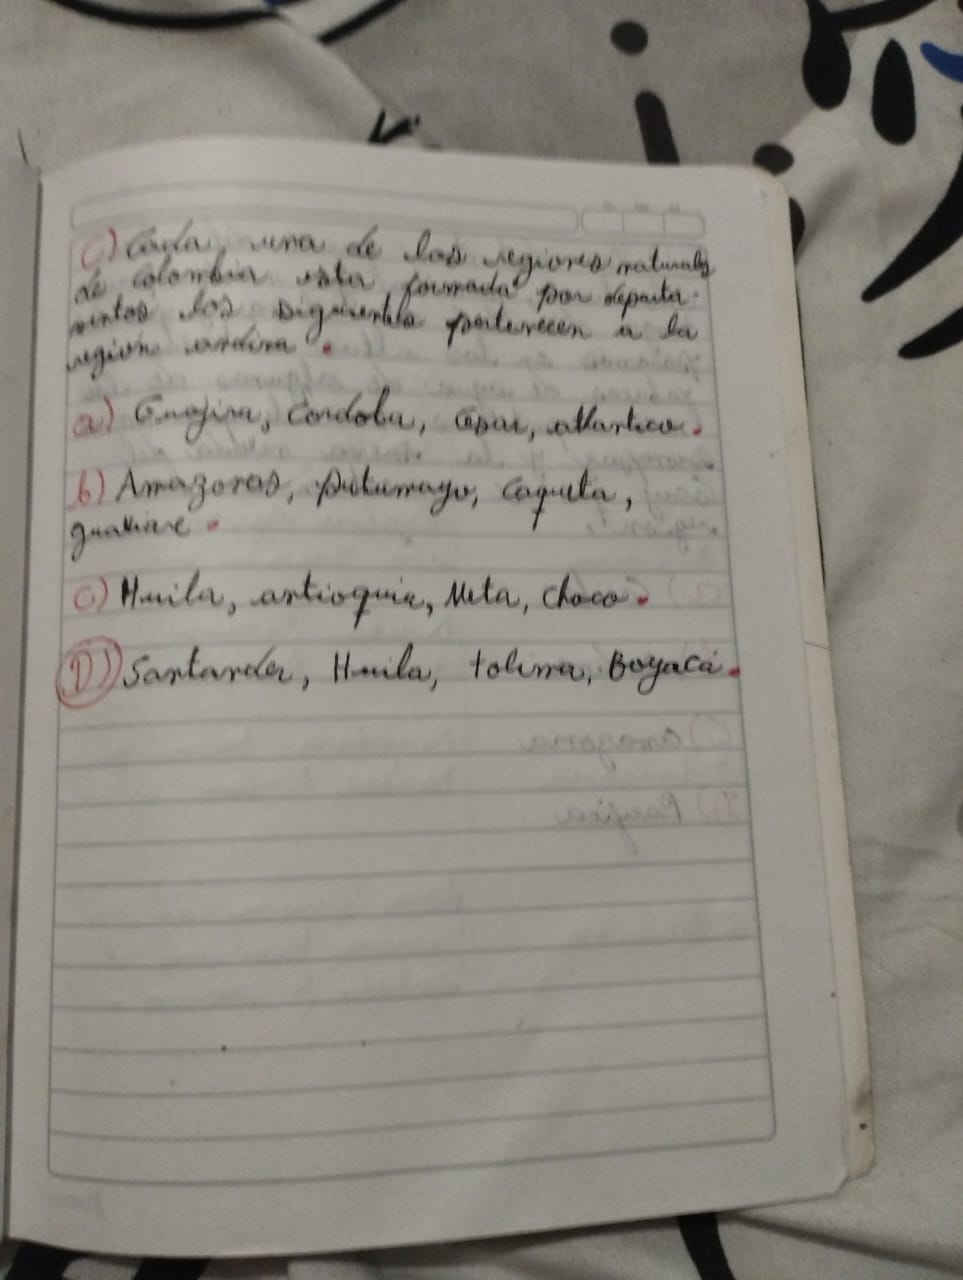 C) Cada una de las regiones naturales
de colombia esta formada por departa-
mentos los siguientes pertenecen a la
region andina.
a) Guajira, Cordoba, Cesar, atlantico.
b) Amazonas, putumayo, Caqueta,
guaviare.
c) Huila, antioquia, Meta, choco.
D) Santander, Huila, tolima, Boyacá.